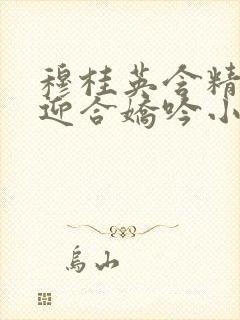 穆桂英含精
迎合娇吟小
乌山